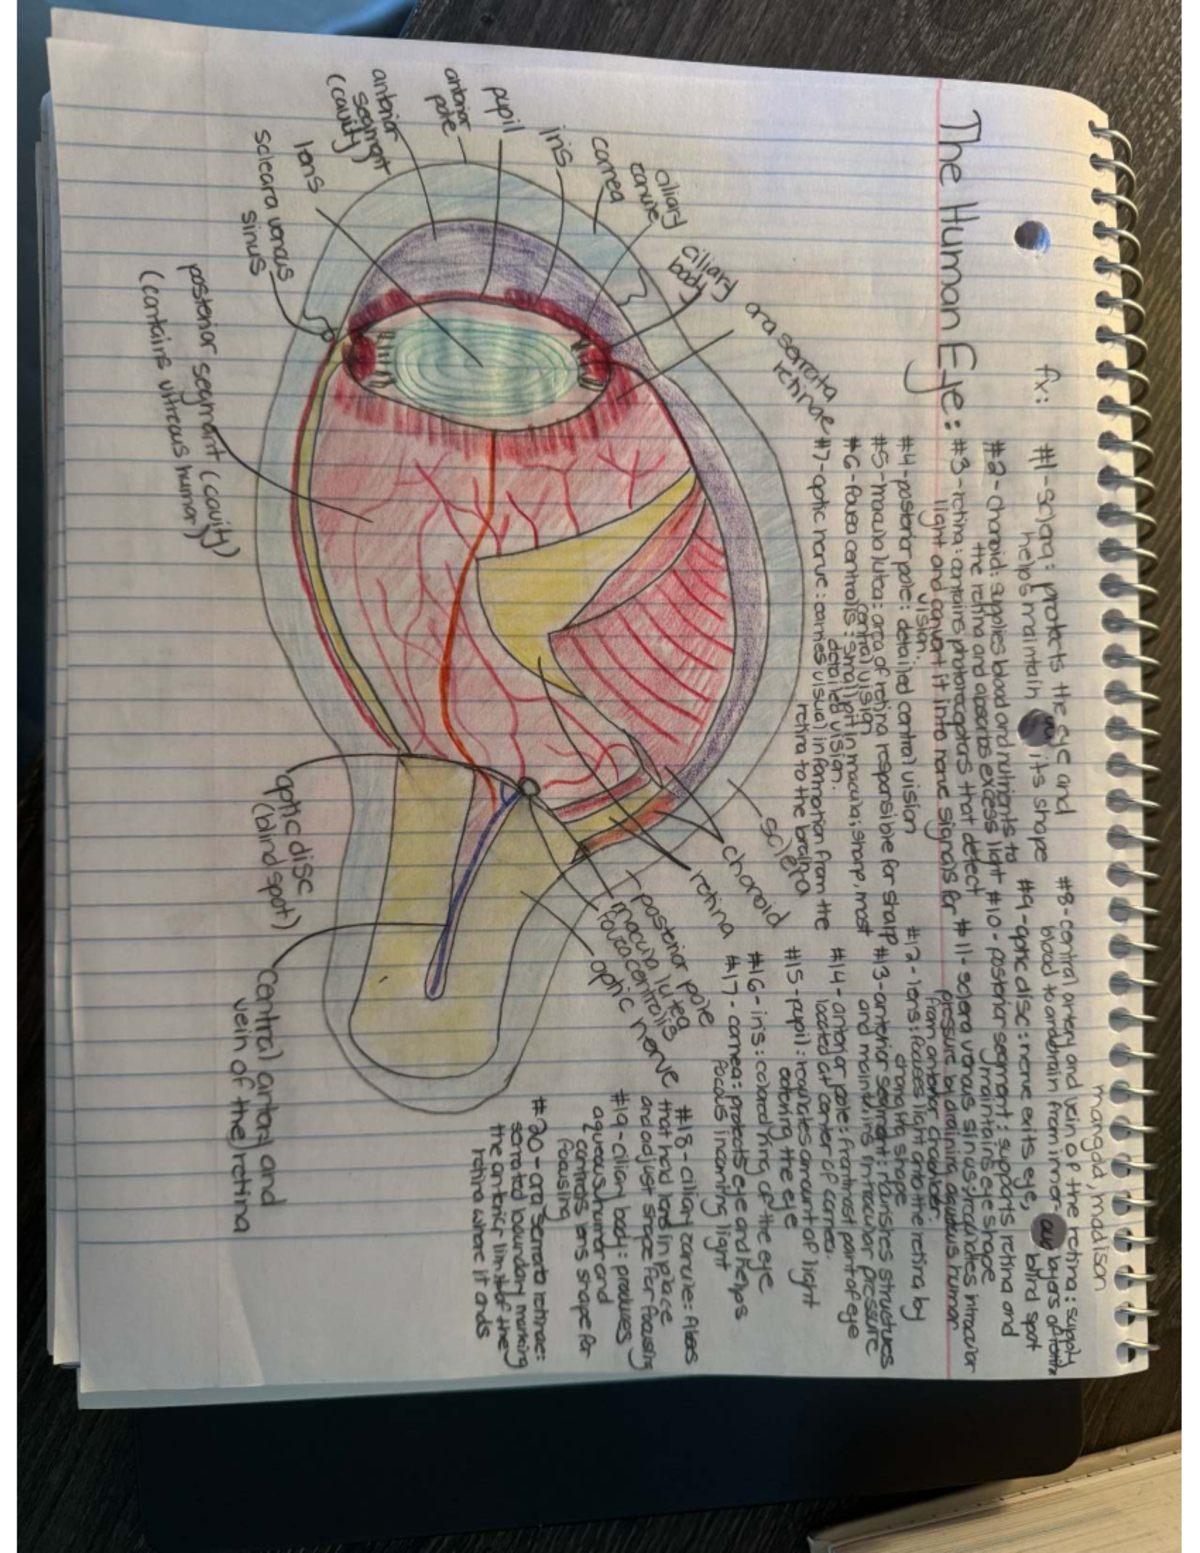 mangold, madison
The Human Eye:
fx:
#1-sclera: protects the eye and
helps maintain its shape
#2-choroid: supplies blood and nutrients to
the retina and absorbs excess light
#3-retina: contains photoreceptors that detect
light and convert it into nerve signals for
vision.
#4-posterior pole: detailed central vision
#5-macula lutea: area of retina responsible for sharp
central vision
#6-fovea centralis: small pit in macula; sharp, most
detailed vision.
#7-optic nerve: carries visual information from the
retina to the brain
#8-central artery and vein of the retina: supply
blood to and drain from inner layers of
#9-optic disc: nerve exits eye, blind spot
#10-posterior segment: supports retina and
maintains eye shape
#11-sclera venous sinus: regulates intraocular
pressure by draining aqueous humor
from anterior chamber.
#12-lens: focuses light onto the retina by
changing shape
#13-anterior segment: nourishes structures
and maintains intraocular pressure
#14-anterior pole: frontmost point of eye
located at center of cornea.
#15-pupil: regulates amount of light
entering the eye
#16-iris: colored ring of the eye
#17-cornea: protects eye and helps
focus incoming light
#18-ciliary zonule: fibers
that hold lens in place
and adjust shape for focusing
#19-ciliary body: produces
aqueous humor and
controls lens shape for
focusing
#20-ora serrata retinae:
serrated boundary marking
the anterior limit of the
retina where it ends
ora serrata
retinae
ciliary
body
ciliary
zonule
cornea
iris
pupil
anterior
pole
anterior
segment
(cavity)
lens
scleara venous
sinus
posterior segment (cavity)
(contains vitreous humor)
sclera
choroid
retina
posterior pole
macula lutea
fovea centralis
optic nerve
optic disc
(blind spot)
central artery and
vein of the retina